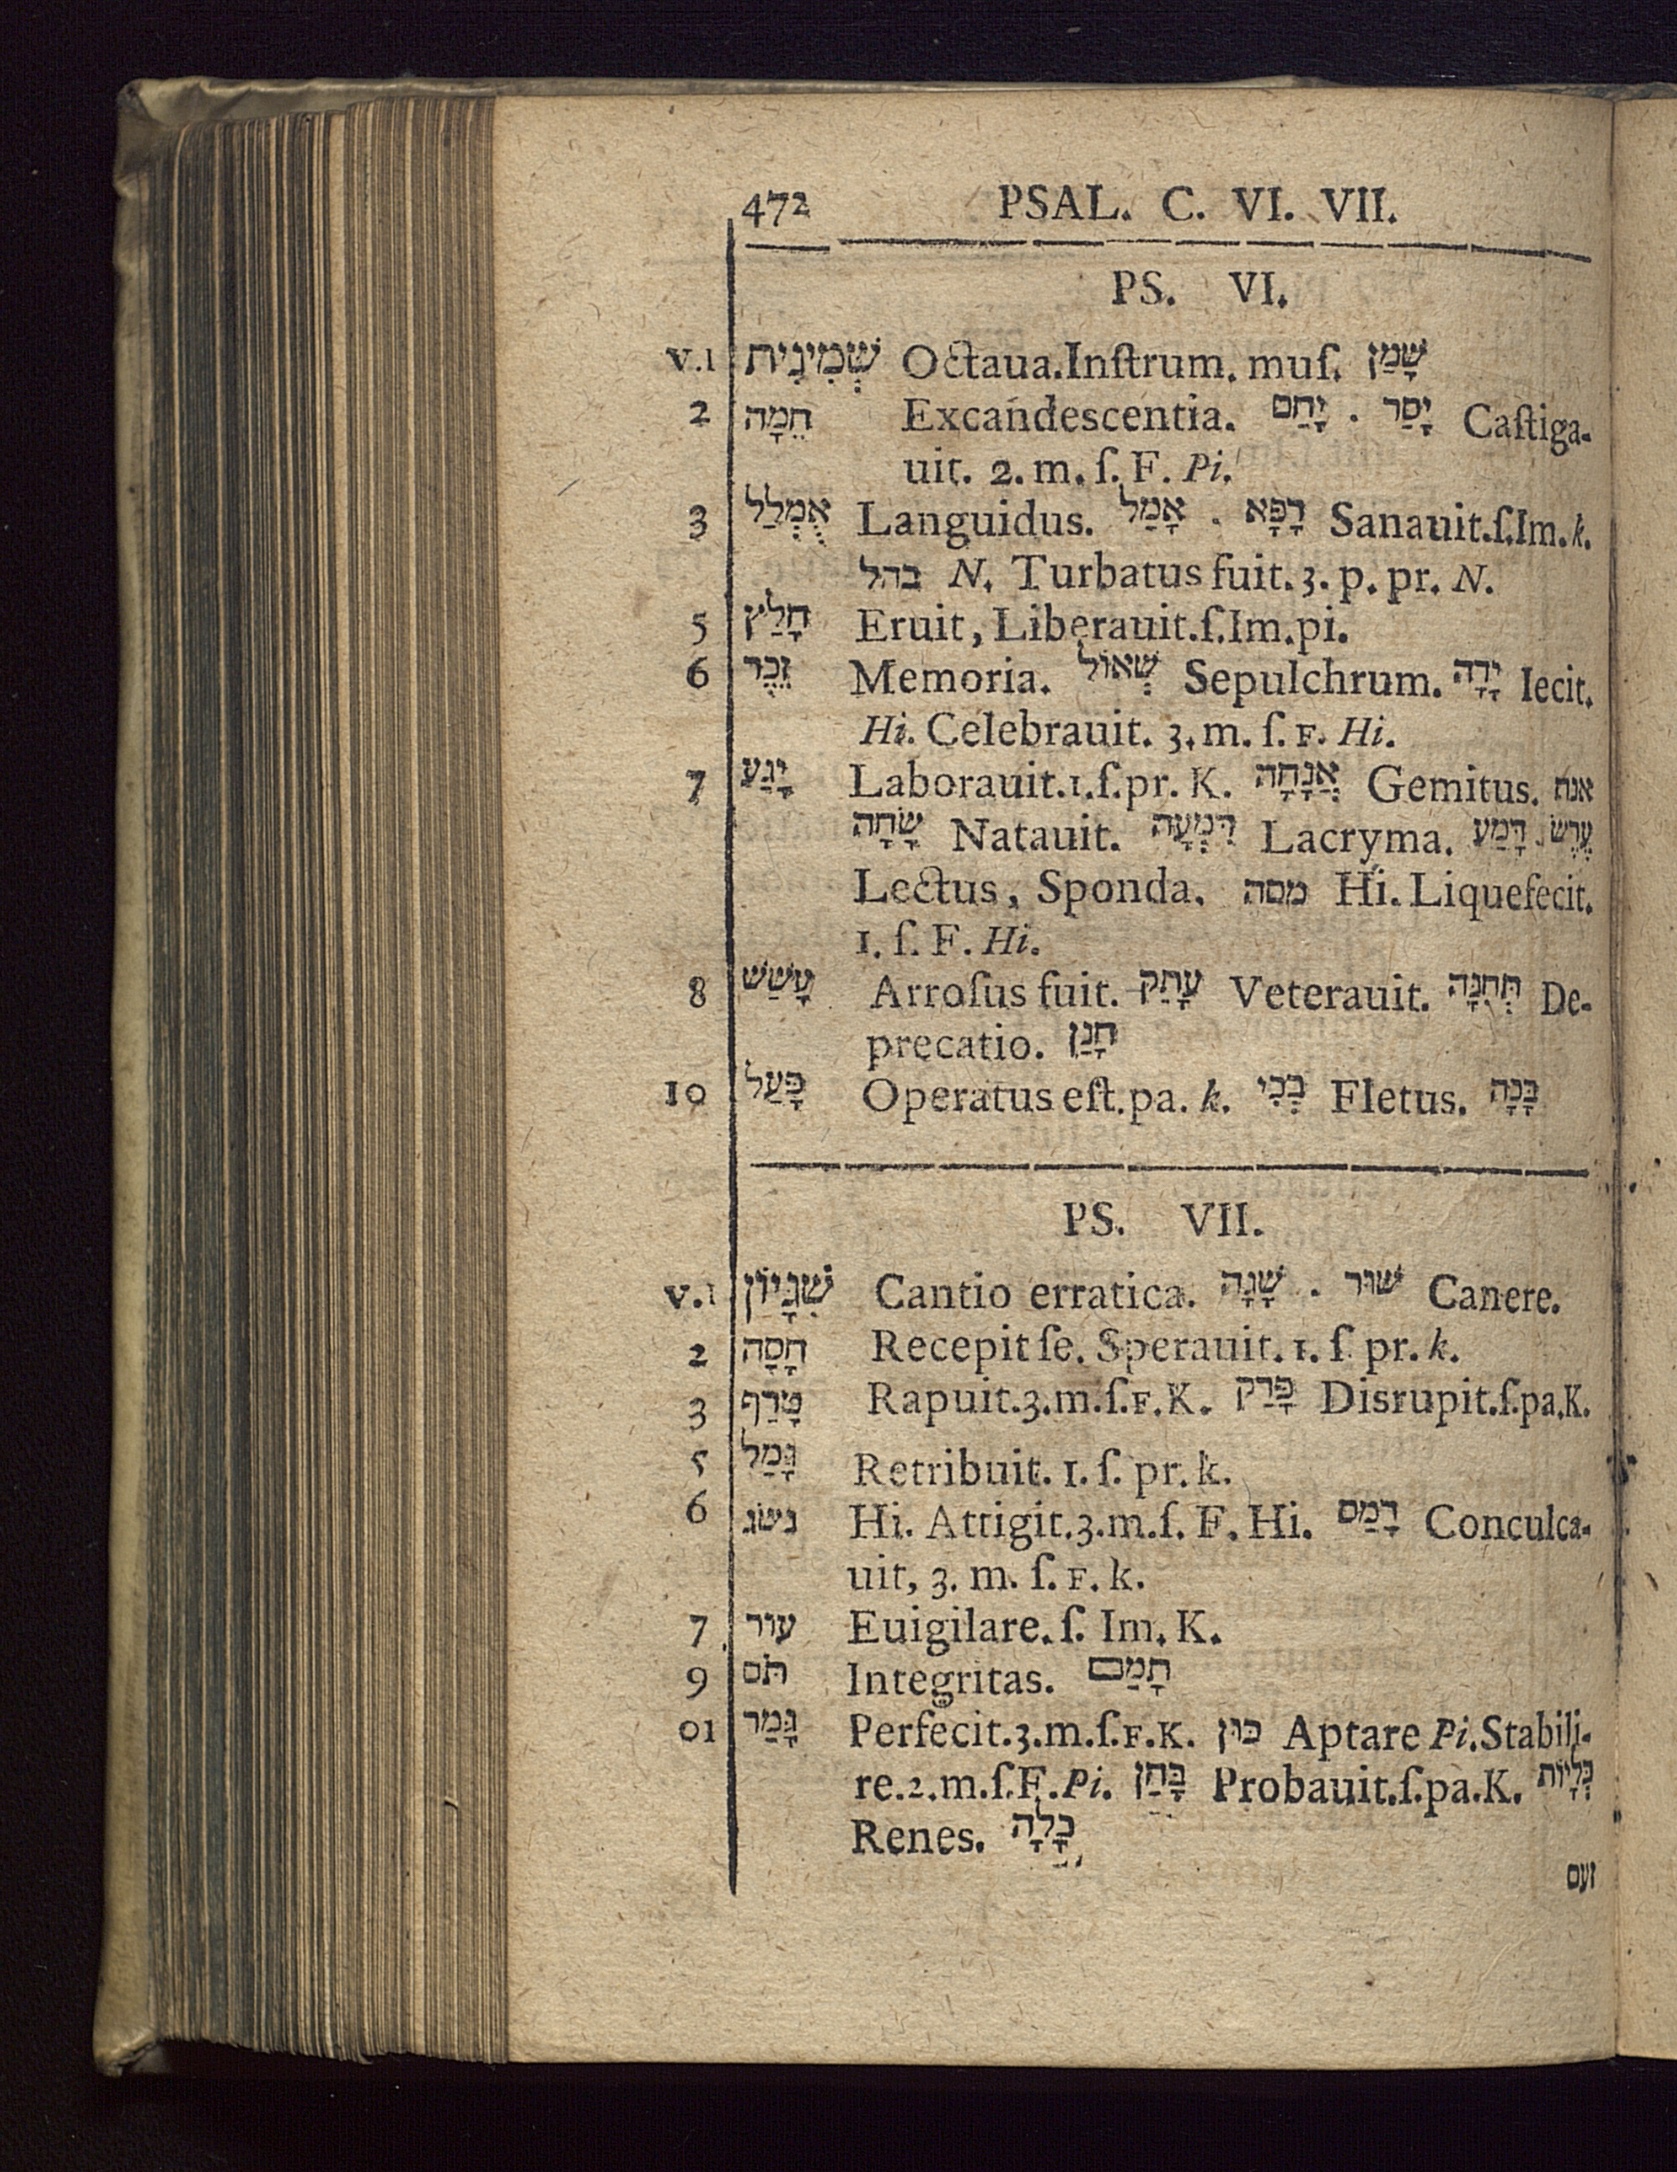 472 PSAL. C. VI. VII.
PS. VI.
V.1 שְׁמִינִית Octaua.Inſtrum. muſ. שָׁמַן
2 חֵמָה Excandescentia. יָחַם . יָסַר Caſtiga-
uit. 2. m. ſ. F. Pi.
3 אֻמְלַל Languidus. אָמַל . רָפָּא Sanauit.ſ.Im.k.
בהל N. Turbatus fuit. 3. p. pr. N.
5 חָלַץ Eruit, Liberauit.ſ.Im.pi.
6 זֵכֶר Memoria. שְׁאוֹל Sepulchrum. יָדָה Iecit.
Hi. Celebrauit. 3. m. ſ. F. Hi.
7 יָגַע Laborauit.1.ſ.pr. K. אֲנָחָה Gemitus. אנח
שָׂחָה Natauit. דִּמְעָה Lacryma. דָּמַע . עֶרֶשׂ
Lectus, Sponda. מסה Hi. Liquefecit.
1. ſ. F. Hi.
8 עָשַׁשׁ Arroſus fuit. עָתַק Veterauit. תְּחִנָּה De-
precatio. חָנַן
10 פָּעַל Operatus eſt.pa. k. בְּכִי Fletus. בָּכָה
PS. VII.
V.1 שִׁגָּיוֹן Cantio erratica. שָׁגָה . שׁוּר Canere.
2 חָסָה Recepit ſe. Sperauit. 1. ſ pr. k.
3 טָרַף Rapuit.3.m.ſ.F.K. פָּרַק Disrupit.ſ.pa.K.
5 גָּמַל Retribuit. 1. ſ. pr. k.
6 נשׂג Hi. Attigit.3.m.ſ. F. Hi. רָמַס Conculca-
uit, 3. m. ſ. F. k.
7 עור Euigilare. ſ. Im. K.
9 תֹּם Integritas. תָּמַם
01 גָּמַר Perfecit.3.m.ſ.F.K. כּוּן Aptare Pi.Stabili-
re.2.m.ſ.F.Pi. בָּחַן Probauit.ſ.pa.K. כְּלָיוֹת
Renes. כָּלָה
זעם